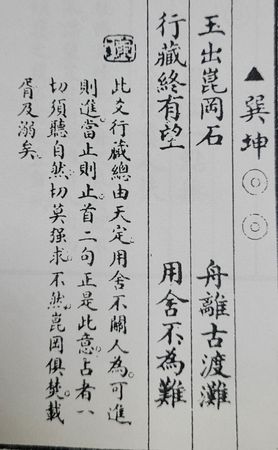 ▲ 巽坤◎◎
玉出崑岡石 舟離古渡灘
行藏終有望 用舍不為難
此爻行藏總由天定。用舍不關人為。可進
則進。當止則止。首二句正是此意。占者八
切須聽自然。切莫强求。不然崑岡俱焚。載
胥及溺矣。